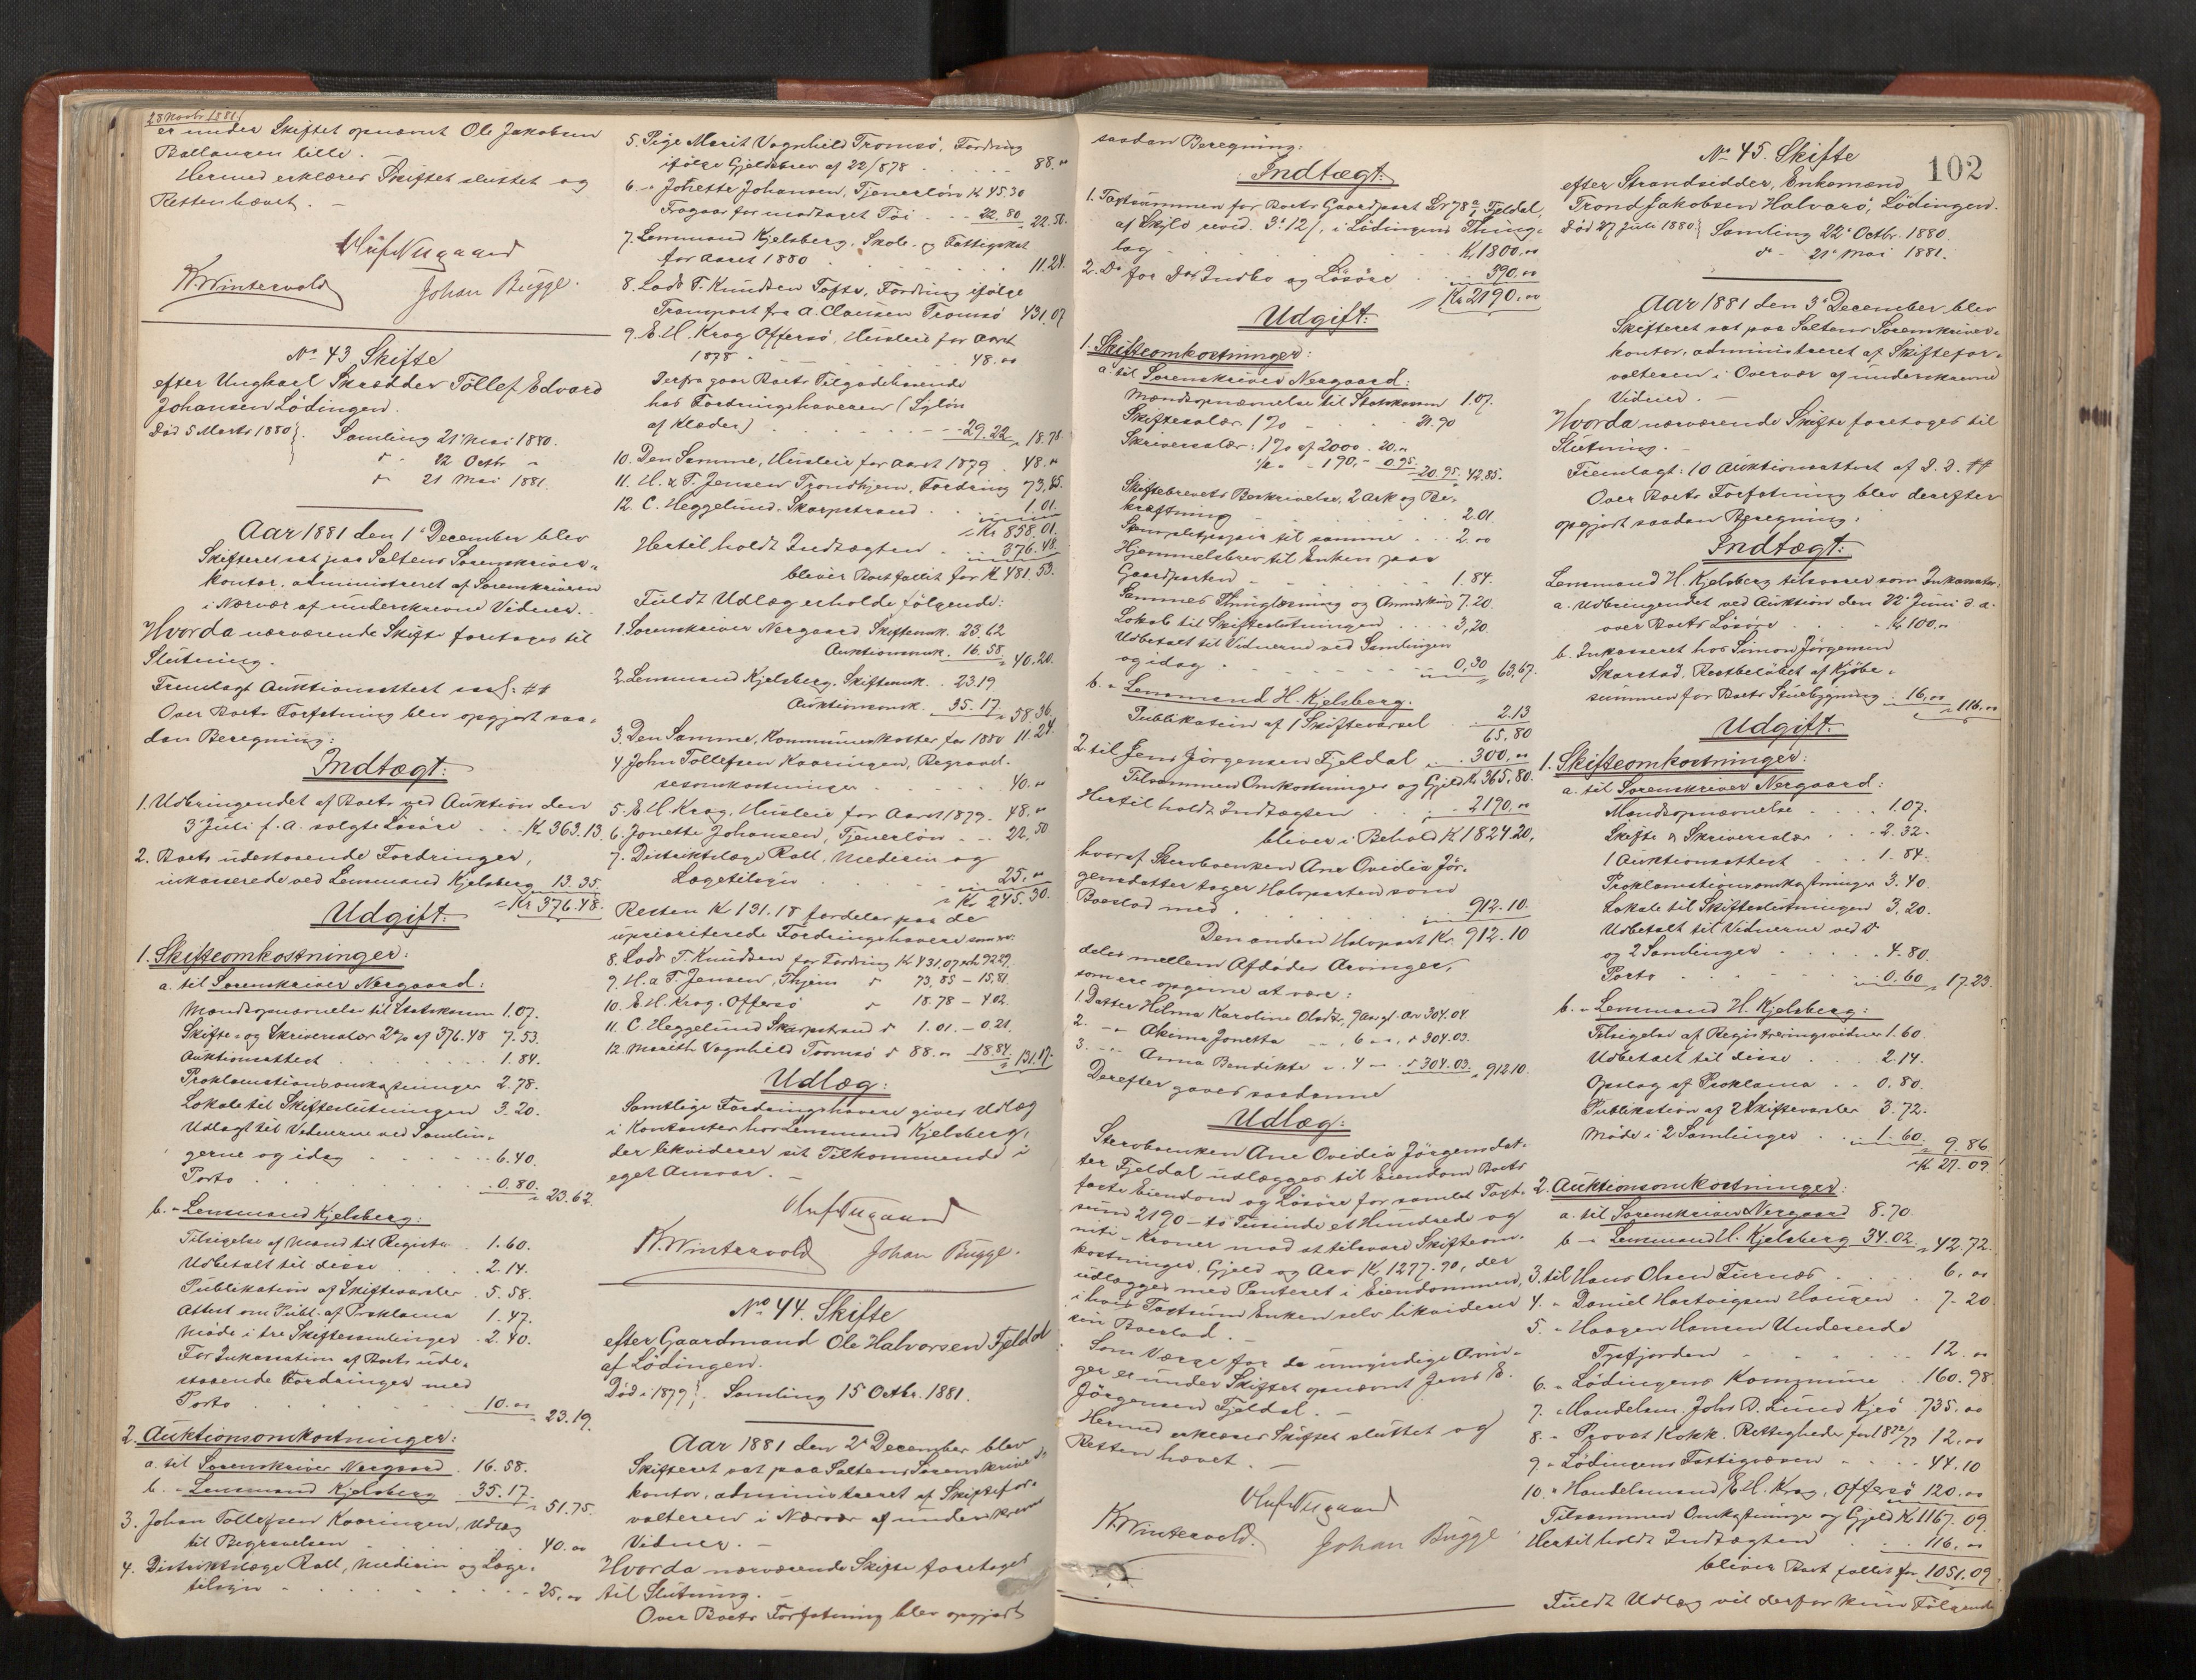 28 Novbr 1881
er under Skiftet opnævnt Ole Jakobsen
Ballangen lille. -
Hermed erklæres Skiftet sluttet og
Retten hævet. -
Oluf Nergaard
K. Wintervold Johan Bugge.
No 43 Skifte
efter Ungkarl Skrædder Tollef Edvard
Johansen Lödingen.
Död 5 Marts 1880. Samling 21 Mai 1880.
do - 22 Octbr "
do 21 Mai 1881.
Aar 1881 den 1' December blev
Skifteret sat paa Saltens Sorenskriver-
kontor, administreret af Sorenskriveren
i Nærvær af underskrevne Vidner. -
Hvorda nærværende Skifte foretages til
Slutning.
Fremlagt Auktionsattest saal: ##
Over Boets Forfatning blev opgjort saa-
dan Beregning:
Indtægt:
1. Udbringendet af Boets ved Auktion den
3' Juli f. A. solgte Lösöre - - Kr. 363.13
2. Boets udestaaende Fordringer,
inkasserede ved Lensmand Kjelsberg 13.35.
= Kr 376.48.
Udgift:
1. Skifteomkostninger:
a. til Sorenskriver Nergaard:
Mandsopnævnelse til Statskassen 1.07.
Skifte- og Skriversalær 2% af 376.48 7.53.
Auktionsattest . . . . 1.84.
Proklamationsomkostninger 2.78.
Lokale til Skifteslutningen 3.20.
Udlagt til Vidnerne ved Samlin-
gerne og idag . . . . 6.40.
Porto . . . . 0.80. " 23.62.
b. " Lensmand Kjelsberg:
Tilsigelse af Mænd til Registr. 1.60.
Udbetalt til disse . . . 2.14.
Publikation af Skiftevarsler . 5.58.
Attest om Publ. af Proklama 1.47.
Möde i tre Skiftesamlinger . 2.40.
For Inkassation af Boets ude-
staaende Fordringer med
Porto . . . . 10.00 " 23.19.
2. Auktionsomkostninger:
a. til Sorenskriver Nergaard . 16.58.
b. " Lensmand Kjelsberg 35.17 " 51.75.
3. Johan Tollefsen Kaaringen, Udlæg
til Begravelsen . . . 40.00
4. Distriktslæge Roll, Medicin og Læge-
tilsyn - . . . . 25.00
5. Pige Marit Vognhild Tromsö, Fordring
ifölge Gjeldsbrev af 22/8 78 . . . 88.00
6. " Jonette Johansen, Tjenerlön Kr 45.30
Fragaar for modtaget Töi . - 22.80 " 22.50.
7. Lensmand Kjelsberg, Skole- og Fattigskat
for Aaret 1880 . . . 11.24.
8. Lods T. Knudsen Tofte, Fordring ifölge
Transport fra A. Clausen Tromsö 431.07
9. E. H. Krag Offersö, Husleie for Aaret
1878 . . . 48.00
Derfra gaar Boets Tilgodehavende
hos Fordringshaveren (Sylön
af Klæder) . . . 29.22 " 18.78.
10. Den Samme, Husleie for Aaret 1879 . 48.00
11. H. & F. Jensen Trondhjem, Fordring 73.85.
12. C. Heggelund, Skarpstrand . . 1.01.
= Kr 858.01.
Hertil holdt Indtægten . . . 376.48.
bliver Boet fallit for Kr 481.53.
Fuldt Udlæg erholde fölgende:
1. Sorenskriver Nergaard Skifteomk. 23.62
Auktionsomk. 16.58. " 40.20.
2. Lensmand Kjelsberg, Skifteomk. . 23.19
Auktionsomk. 35.17 " 58.36.
3. Den Samme, Kommuneskatter for 1880 11.24.
4 John Tollefsen Kaaringen, Begravel-
sesomkostninger . . . 40.00
5. E. H. Krag, Husleie for Aaret 1879 . 48.00
6. Jonette Johansen, Tjenerlön . . 22.50
7. Distriktslæge Roll, Medicin og
Lægetilsyn . . . 25.00
= Kr 245.30.
Resten Kr 131.18 fordeles paa de
uprioriterede Fordringshavere som er:
8. Lods T. Knudsen for Fordring Kr 431.07 erh. 92.29.
9. H. & F. Jensen, Thjem do 73.85 - 15.81.
10. E. H. Krag, Offersö do 18.78 - 4.02.
11. C. Heggelund Skarpstrand do 1.01. - 0.21.
12. Marith Vognhild Tromsö do 88.00 18.84. " 131.17.
Udlæg:
Samtlige Fordringshavere gives Udlæg
i Kontanter hos Lensmand Kjelsberg,
der likviderer sit Tilkommende i
eget Ansvar. -
Oluf Nergaard
K. Wintervold Johan Bugge.
No 44. Skifte
efter Gaardmand Ole Halvorsen Fjeldal
af Lödingen.
Död i 1879. Samling 15 Octbr. 1881.
Aar 1881 den 2' December blev
Skifteret sat paa Saltens Sorenskriver-
kontor, administreret af Skiftefor-
valteren i Nærvær af underskrevne
Vidner. -
Hvorda nærværende Skifte foretages
til Slutning. -
Over Boets Forfatning blev opgjort
saadan Beregning:
Indtægt:
1. Taxtsummen for Boets Gaardpart Lr 78 a/1 Fjeldal,
af Skyld revid. 3' 12/, i Lödingens Thing-
lag . . . Kr 1800.00
2. Do for Dos Indbo og Lösöre . . 390.00
= Kr 2190.00
Udgift:
1. Skifteomkostninger:
a. til Sorenskriver Nergaard:
Mandsopnævnelse til Statskassen 1.07.
Skiftesalær 1% . . . 21.90
Skriversalær: 1% af 2000 . 20.00
1/2 " . 190. - 0.95. " 20.95. 42.85.
Skiftebrevets Beskrivelse, 2 Ark og Be-
kræftning . . . 2.01.
Stempletpapir til samme . . . 2.00
Hjemmelsbrev til Enken paa
Gaardparten . . . 1.84.
Sammes Thinglæsning og Anmeldning 7.20.
Lokale til Skifteslutningen . . . 3.20.
Udbetalt til Vidnerne ved Samlingen
og idag . . . 0.30 " 63.67.
b. " Lensmand H. Kjelsberg:
Publikation af 1 Skiftevarsel 2.13
65.80
2. til Jens Jörgensen Fjeldal . . 300.00
Tilsammen Omkostninger og Gjeld Kr 365.80.
Hertil holdt Indtægten . . 2190.00
bliver i Behold Kr 1824.20.
hvoraf Stervboenken Ane Ovidia Jör-
gensdatter tager Halvparten som
Boeslod med . . . 912.10.
Den anden Halvpart Kr. 912.10
deles mellem Afdödes Arvinger,
som ere opgivne at være:
1. Datter Helma Karoline Olsdtr, 9 Aar gl. Arv 304.04.
2. - " Akima Jonetta - " 6 - " do 304.03.
3. - " Anna Bendikte " 4 - " do 304.03. " 912.10.
Derefter gaves saadanne
Udlæg:
Stervboenken Ane Ovidia Jörgensdat-
ter Fjeldal udlægges til Eiendom Boets
faste Eiendom og Lösöre for samlet Taxt-
sum 2190 - to Tusinde et Hundrede og
niti - Kroner mod at tilsvare Skifteom-
kostninger, Gjeld og Arv Kr 1277.90, der
udlægges med Panteret i Eiendommen,
i hvis Taxtsum Enken selv likviderer
sin Boeslod. -
Som Værge for de umyndige Arvin-
ger er under Skiftet opnævnt Jens E.
Jörgensen Fjeldal. -
Hermed erklæres Skiftet sluttet og
Retten hævet. -
Oluf Nergaard
K. Wintervold. Johan Bugge
102
No 45. Skifte
efter Strandsidder, Enkemand
Trond Jakobsen Halvarö, Lödingen.
Död 27 Juli 1880. Samling 22' Octbr. 1880.
do - 21' Mai 1881.
Aar 1881 den 3' December blev
Skifteret sat paa Saltens Sorenskriver-
kontor, administreret af Skiftefor-
valteren i Overvær af underskrevne
Vidner. -
Hvorda nærværende Skifte foretages til
Slutning. -
Fremlagt: 10 Auktionsattest af D. D. ##
Over Boets Forfatning blev derefter
opgjort saadan Beregning:
Indtægt:
Lensmand H. Kjelsberg tilsvarer som Inkassator:
a. Udbringendet ved Auktion den 22' Juni d. A.
over Boets Lösöre . . . Kr 100.00
b. Inkasseret hos Simon Jörgensen
Skarstad, Restbelöbet af Kjöbe-
summen for Boets Stuebygning . 16.00 " 116.00
Udgift:
1. Skifteomkostninger:
a. til Sorenskriver Nergaard:
Mandsopnævnelse . . . 1.07.
Skifte & Skriversalær . . . 2.32.
1 Auktionsattest . . . 1.84.
Proklamationsomkostninger 3.40.
Lokale til Skifteslutningen 3.20.
Udbetalt til Vidnerne ved do
og 2 Samlinger . . . 4.80.
Porto . . . 0.60 " 17.23.
b. " Lensmand H. Kjelsberg:
Tilsigelse af Registreringsvidner 1.60.
Udbetalt til disse . . 2.14.
Opslag af Proklama . . 0.80.
Publikation af 2 Skiftevarsler 3.72.
Möde i 2 Samlinger . . 1.60. " 9.86.
= Kr. 27.09
2. Auktionsomkostninger:
a. til Sorenskriver Nergaard 8.70.
b - " Lensmand H. Kjelsberg 34.02. " 42.72.
3. til Hans Olsen Turnæs . . . 6.00
4. " Daniel Hartvigsen Haugen . 7.20
5. " Haagen Hansen Undereide
Tysfjorden . . . 12.00
6. " Lödingens Kommune . . 160.98.
7. " Handelsm. Johs D. Lund Kjeö . 735.00
8. " Provst Kokk. Rettigheder for 1872/77 12.00
9 " Lödingens Fattigvæsen . . . 44.10
10. " Handelsmand E. H. Krag, Offersö 120.00
Tilsammen Omkostninger og Gjeld Kr 1167.09.
Hertil holdt Indtægten . . 116.00
bliver Boet fallit for 1051.09
Fuldt Udlæg vil derfor kun Fölgende